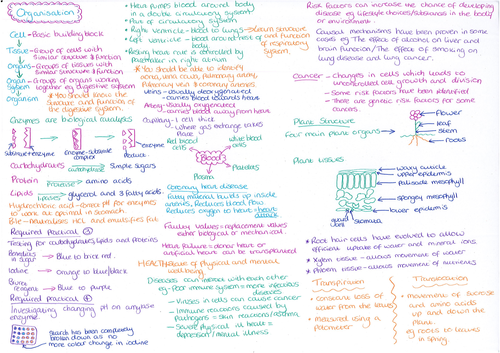 Organisation
Cell - Basic building block
Tissue - Group of cells with
similar structure & function
Organ - Groups of tissues with
similar structure & function
Organ - Groups of organs working
system together eg digestive system
Organism
* You should know the
structure and function of
the digestive system.
Enzymes are biological catalysts
substrate enzyme
enzyme-substrate
complex
enzyme
Product
Carbohydrates → simple sugars
carbohydrase
Protein → amino acids
Protease
Lipids → glycerol and 3 fatty acids.
Lipases
Hydrochloric acid - Great pH for enzymes
to work at optimum in stomach.
Bile - Neutralises HCl and emulsifies fat
Required practical ③
Testing for carbohydrates, lipids and proteins
Benedict's → Blue to brick red.
in sugar
Iodine → orange to blue/black
Biuret → Blue to purple
reagent
Required practical ④
Investigating changing pH on amylase
enzyme
Starch has been completely
broken down as no
more colour change in iodine
• Heart pumps blood around body
in a double circulatory system
• Part of circulatory system
• Right ventricle - blood to lungs
• Left ventricle - blood around rest of
body
Learn structure
and function
of respiratory
system
• Resting heart rate is controlled by
pacemaker in right atrium
* You should be able to identify
aorta, vena cava, pulmonary artery,
pulmonary vein & coronary arteries
Vein - usually deoxygenated
- carries blood towards heart
Artery - usually oxygenated
- carries blood away from heart
Capillary - 1 cell thick
- where gas exchange takes
place
Red blood
cells
white blood
cells
Blood
Platelets
Plasma
Coronary heart disease
Fatty material builds up inside
arteries, Reduces blood flow
Reduces oxygen to heart - heart
attack
Faulty valves - replacement valves
either biological or mechanical.
Heart failure - donor heart or
artificial hearts can be transplanted
HEALTH - State of physical and mental
well-being
Diseases can interact with each other
eg - Poor immune system = more infectious
diseases
- Viruses in cells can cause cancer
- Immune reactions caused by
pathogens = skin reactions/asthma
- Severe physical ill health =
depression/mental illness
Risk factors can increase the chance of developing
disease eg lifestyle choices/substances in the body/
or environment
Causal mechanisms have been proven in some
cases eg The effect of alcohol on liver and
brain function/The effects of smoking on
lung disease and lung cancer.
Cancer - Changes in cells which leads to
uncontrolled cell growth and division
- Some risk factors have been identified
- There are genetic risk factors for some
cancers.
Plant Structure
Four main plant organs
flower
leaf
stem
roots
Plant tissues
waxy cuticle
upper epidermis
palisade mesophyll
spongey mesophyll
lower epidermis
guard cell
stomata
* Root hair cells have evolved to allow
efficient uptake of water and mineral ions.
* Xylem tissue - allows movement of water
* Phloem tissue - allows movement of nutrients
Transpiration
• constant loss of
water from the leaves
• measured using a
potometer
Translocation
• movement of sucrose
and amino acids
up and down the
plant.
eg roots to leaves
in spring.